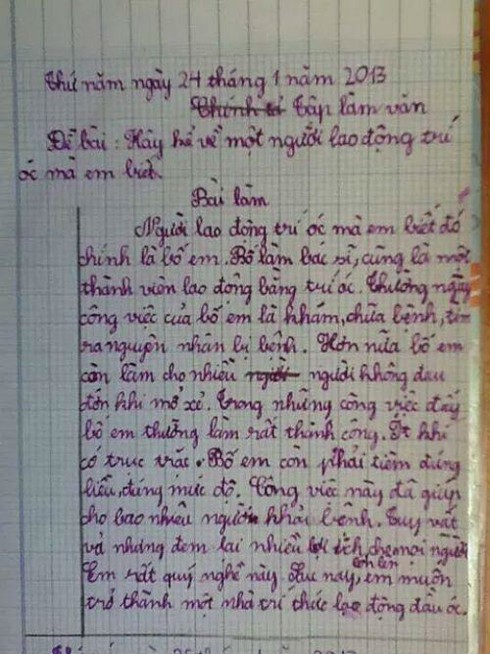 Thứ năm ngày 24 tháng 1 năm 2013
Chính tả Tập làm văn
Đề bài : Hãy kể về một người lao động trí
óc mà em biết.
Bài làm
Người lao động trí óc mà em biết đó
chính là bố em. Bố làm bác sĩ, cũng là một
thành viên lao động bằng trí óc. Thường ngày
công việc của bố em là khám, chữa bệnh, tìm
ra nguyên nhân bị bệnh. Hơn nữa bố em
còn làm cho nhiều người người không đau
đớn khi mổ xẻ. Trong những công việc đấy
bố em thường làm rất thành công. Ít khi
có trục trặc. Bố em còn phải tiêm đúng
liều, đúng mức độ. Công việc này đã giúp
cho bao nhiêu người khỏi bệnh. Tuy vất
vả nhưng đem lại nhiều lợi ích cho mọi người
Em rất quý nghề này. Sau này, lớn lên em muốn
trở thành một nhà trí thức lao động đầu óc.